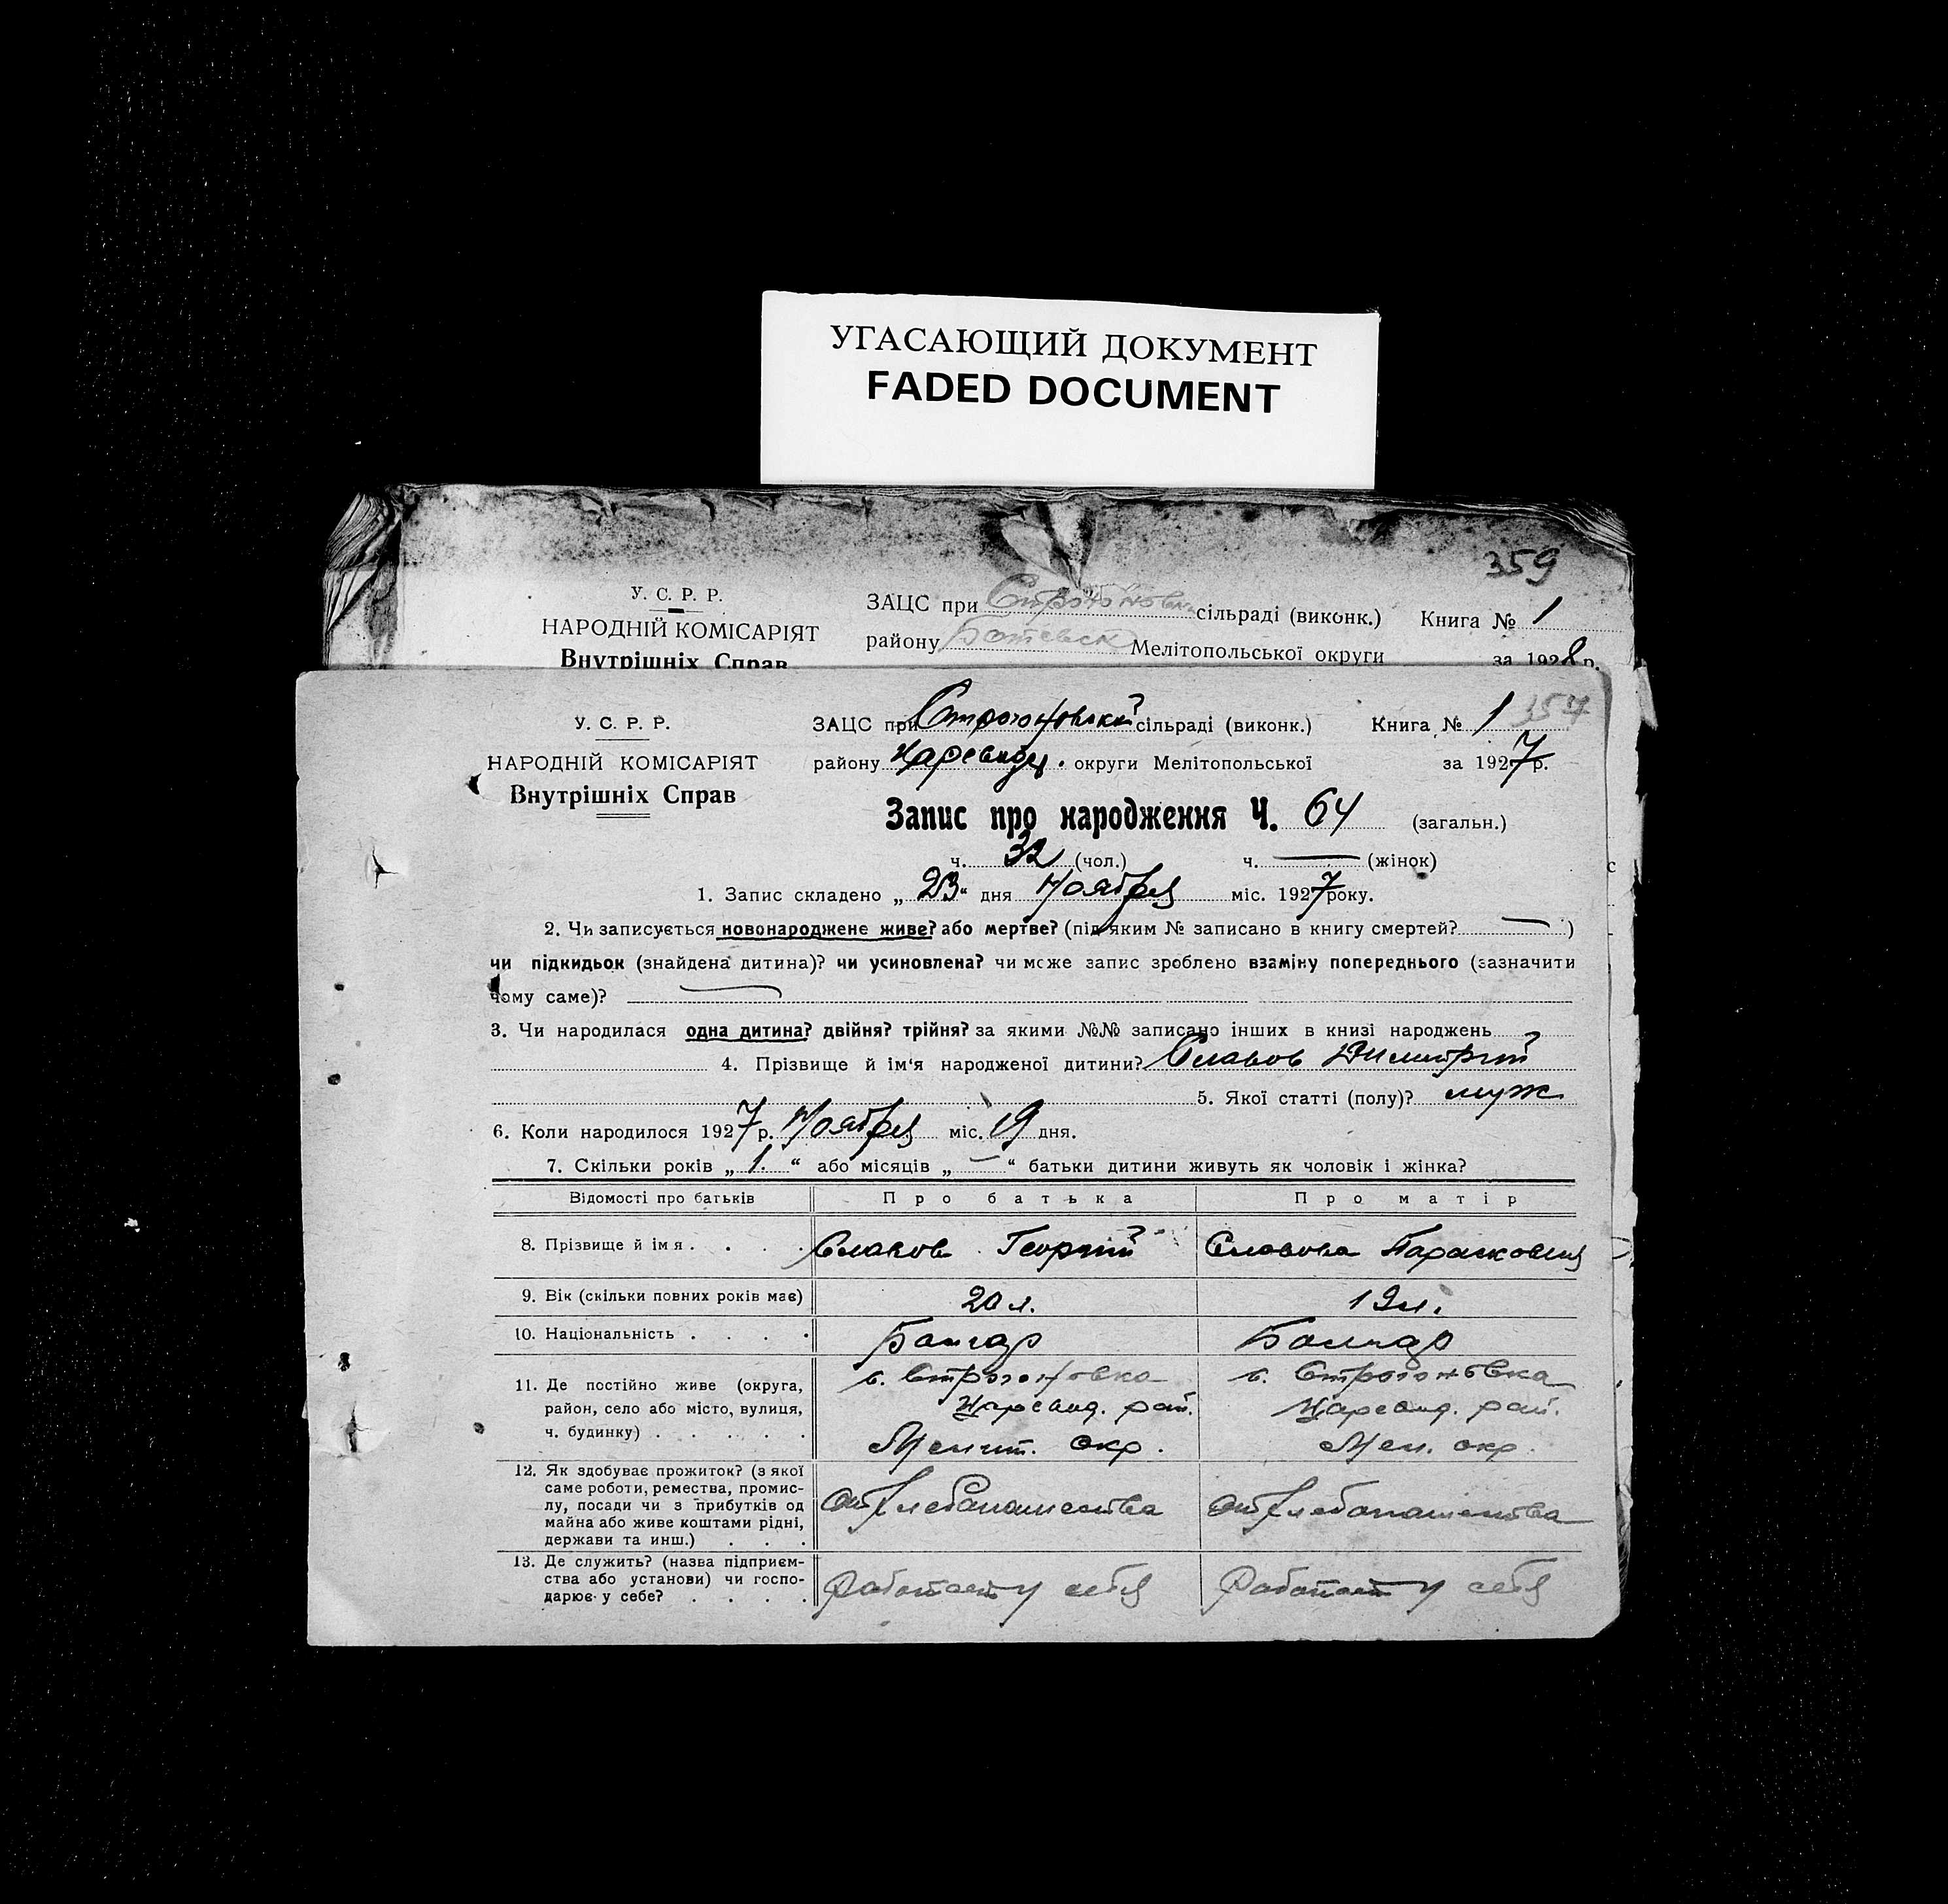 УГАСАЮЩИЙ ДОКУМЕНТ
FADED DOCUMENT
359
У. С. Р. Р.
НАРОДНІЙ КОМІСАРІЯТ
Внутрішніх Справ
ЗАЦС при Строгоновск сільраді (виконк.) Книга № 1
району Ботевск Мелітопольської округи за 1928 р.
357
У. С. Р. Р.
НАРОДНІЙ КОМІСАРІЯТ
Внутрішніх Справ
ЗАЦС при Строгоновской сільраді (виконк.) Книга № 1
району Царевод. округи Мелітопольської за 1927 р.
Запис про народження Ч. 64 (загальн.)
ч. 32 (чол.) ч. — (жінок)
1. Запис складено „ 23 “ дня Ноября міс. 1927 року.
2. Чи записується новонароджене живе? або мертве? (під яким № записано в книгу смертей? — )
чи підкидьок (знайдена дитина)? чи усиновлена? чи може запис зроблено взаміну попереднього (зазначити
чому саме)?
3. Чи народилася одна дитина? двійня? трійня? за якими №№ записано інших в книзі народжень
4. Прізвище й ім'я народженої дитини? Славов Димитрий
5. Якої статті (полу)? муж
6. Коли народилося 1927 р. Ноября міс. 19 дня.
7. Скільки років „ 1. “ або місяців „ — “ батьки дитини живуть як чоловік і жінка?
Відомості про батьків Про батька Про матір
8. Прізвище й імя . . . . Славов Георгий Славова Парасковия
9. Вік (скільки повних років має) 20 л. 19 л.
10. Національність . . . . Болгар Болгар
11. Де постійно живе (округа, район, село або місто, вулиця, ч. будинку) . . . . .
с. Строгоновка с. Строгоновка
Царевод. рай. Царевод. рай.
Мелит. окр. Мел. окр.
12. Як здобуває прожиток? (з якої саме роботи, ремества, промислу, посади чи з прибутків од майна або живе коштами рідні, держави та инш.) . . .
От хлебопашества От хлебопашества
13. Де служить? (назва підприємства або установи) чи господарює у себе? . . . .
Работает у себя Работает у себя